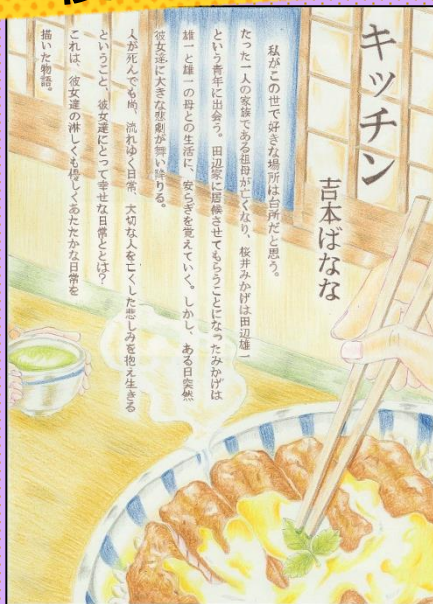 キッチン
吉本ばなな
私がこの世で好きな場所は台所だと思う。
たった一人の家族である祖母が亡くなり、桜井みかげは田辺雄一
という青年に出会う。田辺家に居候させてもらうことになったみかげは
雄一と雄一の母との生活に、安らぎを覚えていく。しかし、ある日突然
彼女達に大きな悲劇が舞い降りる。
人が死んでも尚、流れゆく日常、大切な人を亡くした悲しみを抱え生きる
ということ、彼女達にとって幸せな日常ととは?
これは、彼女達の淋しくも優しくあたたかな日常を
描いた物語。